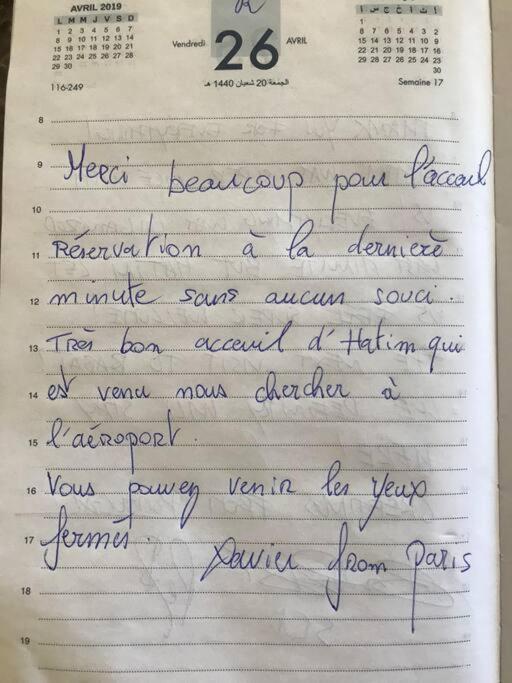 AVRIL 2019
L M M J V S D
1 2 3 4 5 6 7
8 9 10 11 12 13 14
15 16 17 18 19 20 21
22 23 24 25 26 27 28
29 30
116-249
Vendredi
26
AVRIL
الجمعة 20 شعبان 1440 هـ
Semaine 17
8
9 Merci beaucoup pour l'acceuil
10
11 Réservation à la dernière
12 minute sans aucun souci.
13 Très bon acceuil d'Hatim qui
14 est venu nous chercher à
15 l'aéroport.
16 Vous pouvez venir les yeux
17 fermés.
Xavier from Paris
18
19